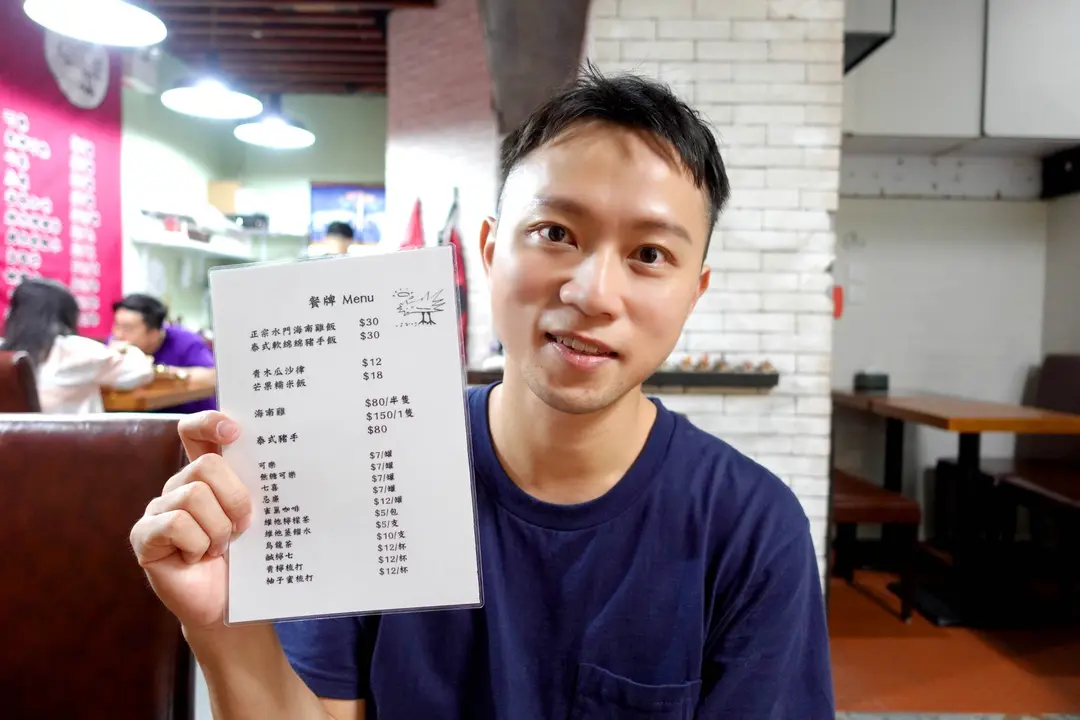 餐牌 Menu
正宗水門海南雞飯 $30
泰式軟綿綿豬手飯 $30
青木瓜沙律 $12
芒果糯米飯 $18
海南雞 $80/半隻
$150/1隻
泰式豬手 $80
可樂 $7/罐
無糖可樂 $7/罐
七喜 $7/罐
忌廉 $7/罐
雀巢咖啡 $12/罐
維他檸檬茶 $5/包
維他蒸餾水 $5/支
烏龍茶 $10/支
鹹檸七 $12/杯
青檸梳打 $12/杯
柚子蜜梳打 $12/杯